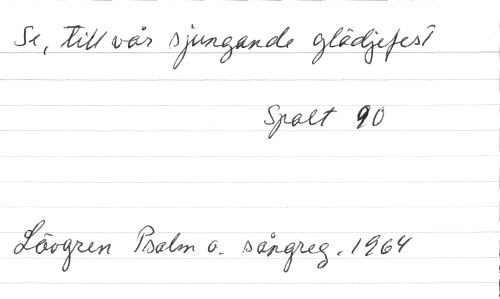 Se, till vår sjungande glädjefest
Spalt 90
Lövgren Psalm o. sångreg. 1964